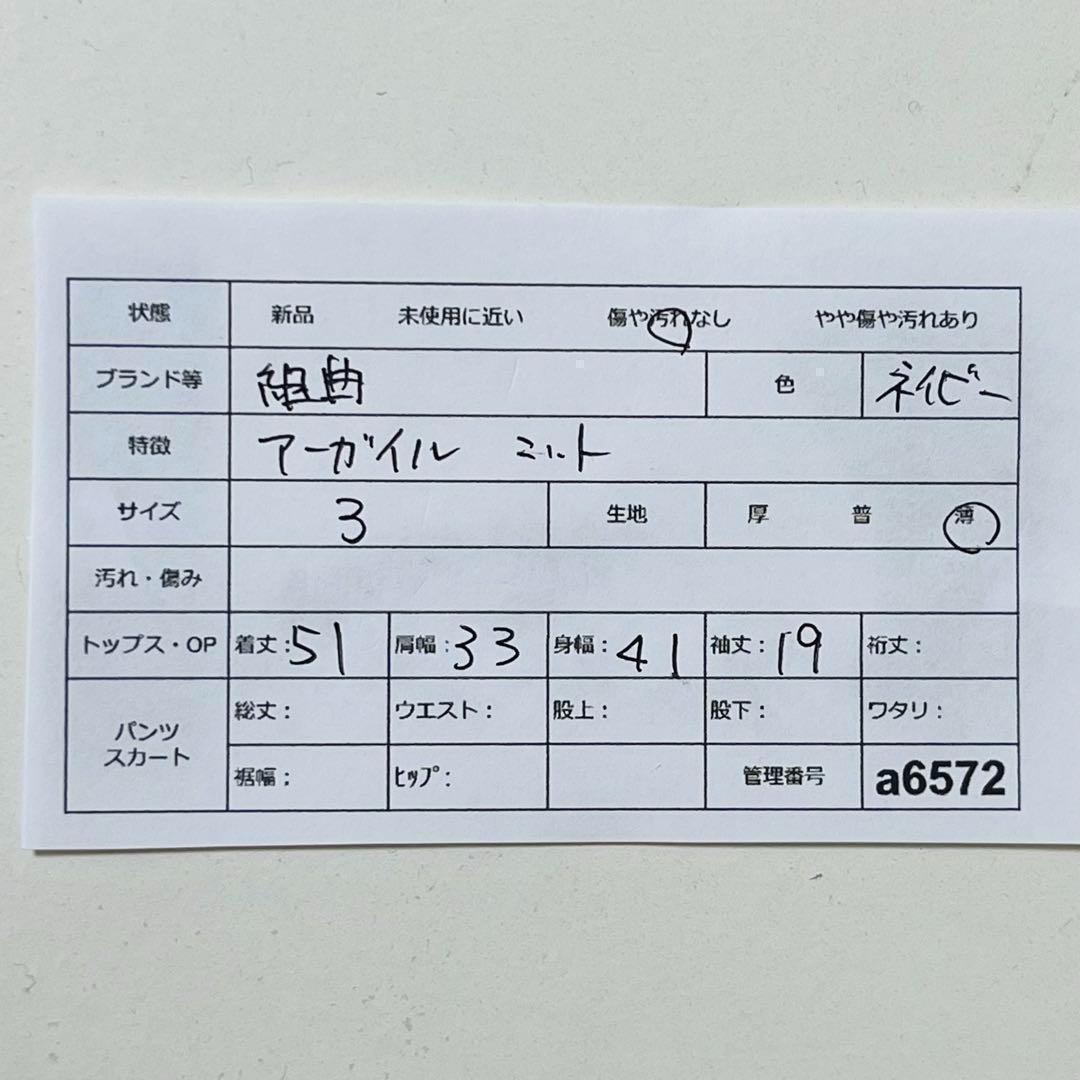 状態 新品 未使用に近い 傷や汚れなし やや傷や汚れあり
ブランド等 組曲 色 ネイビー
特徴 アーガイル ニット
サイズ 3 生地 厚 普 薄
汚れ・傷み
トップス・OP 着丈:51 肩幅:33 身幅:41 袖丈:19 裄丈:
パンツ
スカート
総丈: ウエスト: 股上: 股下: ワタリ:
裾幅: ヒップ: 管理番号 a6572